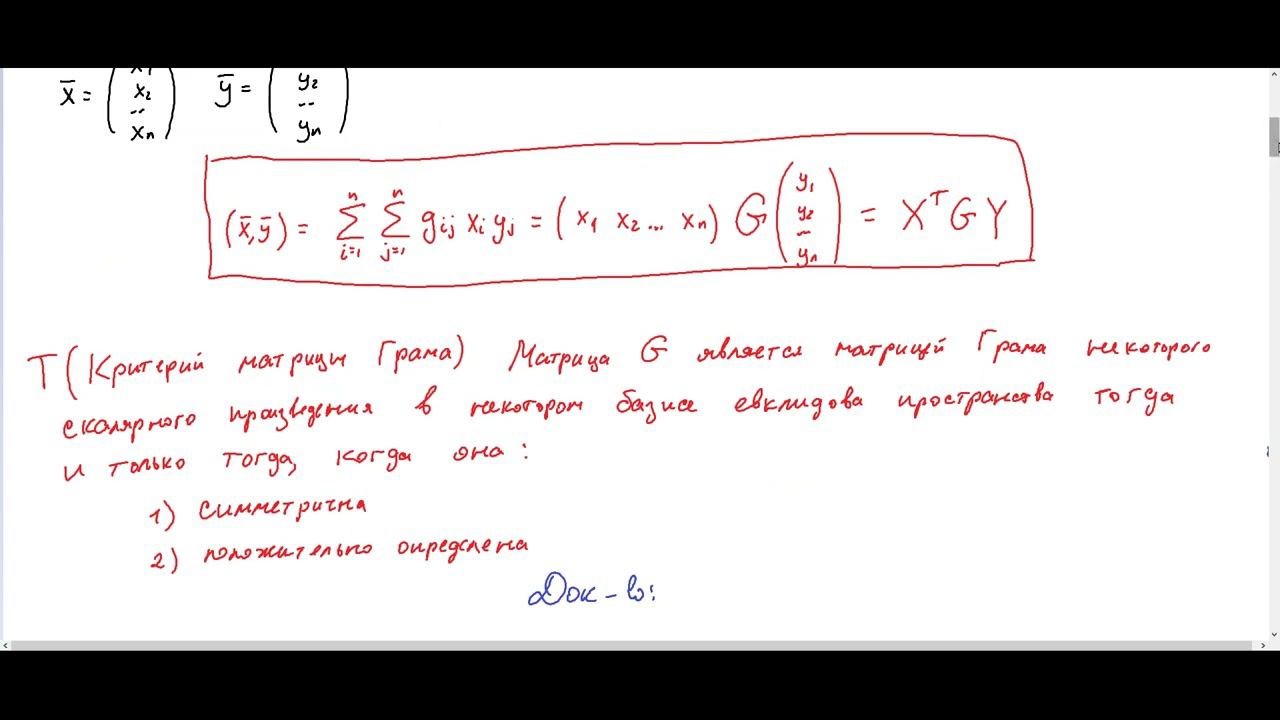 x̄ = (x₁ x₂ ... xₙ) ȳ = (y₂ ... yₙ)
(x̄,ȳ) = ∑ᵢ₌₁ⁿ ∑ⱼ₌₁ⁿ gᵢⱼ xᵢ yⱼ = (x₁ x₂ ... xₙ) G (y₁ y₂ ... yₙ) = XᵀGY
Т (Критерий матрицы Грама) Матрица G является матрицей Грама некоторого
скалярного произведения в некотором базисе евклидова пространства тогда
и только тогда, когда она:
1) симметрична
2) положительно определена
Док-во: